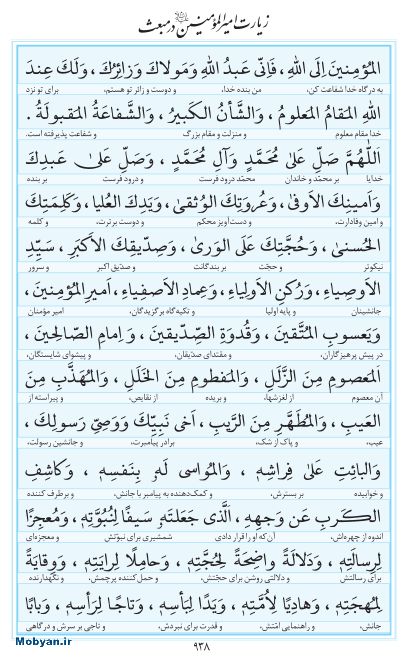 زیارت امیرالمؤمنین در مبعث
الْمُؤْمِنِينَ اِلَى اللهِ، فَاِنّى عَبْدُ اللهِ وَمَوْلاكَ وَزائِرُكَ، وَلَكَ عِنْدَ
به درگاه خدا شفاعت کن، من بنده خدا، و دوست و زائر تو هستم، برای تو نزد
اللهِ الْمَقامُ الْمَعْلُومُ، وَالشَّأْنُ الْكَبيرُ، وَالشَّفاعَةُ الْمَقْبُولَةُ.
خدا مقام معلوم و منزلت و مقام بزرگ و شفاعت پذیرفته است.
اَللّهُمَّ صَلِّ عَلى مُحَمَّدٍ وَآلِ مُحَمَّدٍ، وَصَلِّ عَلى عَبْدِكَ
خدایا بر محمّد و خاندان محمّد درود فرست و درود فرست بر بنده
وَاَمينِكَ الْاَوْفى، وَعُرْوَتِكَ الْوُثْقى، وَيَدِكَ الْعُلْيا، وَكَلِمَتِكَ
و امین وفادارت، و دست‌آویز محکم و دوست برترت، و کلمه
الْحُسْنى، وَحُجَّتِكَ عَلَى الْوَرى، وَصِدّيقِكَ الْاَكْبَرِ، سَيِّدِ
نیکوتر و حجّت بر بندگانت و صدّیق اکبر و سرور
الْاَوْصِياءِ، وَرُكْنِ الْاَوْلِياءِ، وَعِمادِ الْاَصْفِياءِ، اَميرِ الْمُؤْمِنينَ،
جانشینان و پایه اولیا و تکیه‌گاه برگزیدگان، امیر مؤمنان
وَيَعْسُوبِ الْمُتَّقينَ، وَقُدْوَةِ الصِّدّيقينَ، وَاِمامِ الصّالِحينَ،
در پیش پرهیزگاران، و مقتدای صدّیقان، و پیشوای شایستگان،
اَلْمَعْصُومِ مِنَ الزَّلَلِ، وَالْمَفْطُومِ مِنَ الْخَلَلِ، وَالْمُهَذَّبِ مِنَ
آن معصوم از لغزشها، و بریده از نقایص، و پیراسته از
الْعَيْبِ، وَالْمُطَهَّرِ مِنَ الرَّيْبِ، اَخى نَبِيِّكَ وَوَصِىِّ رَسُولِكَ،
عیب، و پاک از شک، برادر پیامبرت، و جانشین رسولت،
وَالْبائِتِ عَلى فِراشِهِ، وَالْمُواسى لَهُ بِنَفْسِهِ، وَكاشِفِ
و خوابیده بر بسترش، و کمک‌دهنده به پیامبر با جانش، و برطرف کننده
الْكَرْبِ عَنْ وَجْهِهِ، اَلَّذى جَعَلْتَهُ سَيْفاً لِنُبُوَّتِهِ، وَمُعْجِزاً
اندوه از چهره‌اش، آن که او را قرار دادی شمشیری برای نبوّتش و معجزه‌ای
لِرِسالَتِهِ، وَدَلالَةً واضِحَةً لِحُجَّتِهِ، وَحامِلاً لِرايَتِهِ، وَوِقايَةً
برای رسالتش و دلالتی روشن برای حجّتش، و حمل کننده پرچمش، و نگهدارنده
لِمُهْجَتِهِ، وَهادِياً لِاُمَّتِهِ، وَيَداً لِبَأْسِهِ، وَتاجاً لِرَأْسِهِ، وَباباً
جانش، و راهنمایی امّتش، و قدرت برای نبردش، و تاجی بر سرش و درگاهی
Mobyan.ir
۹۳۸